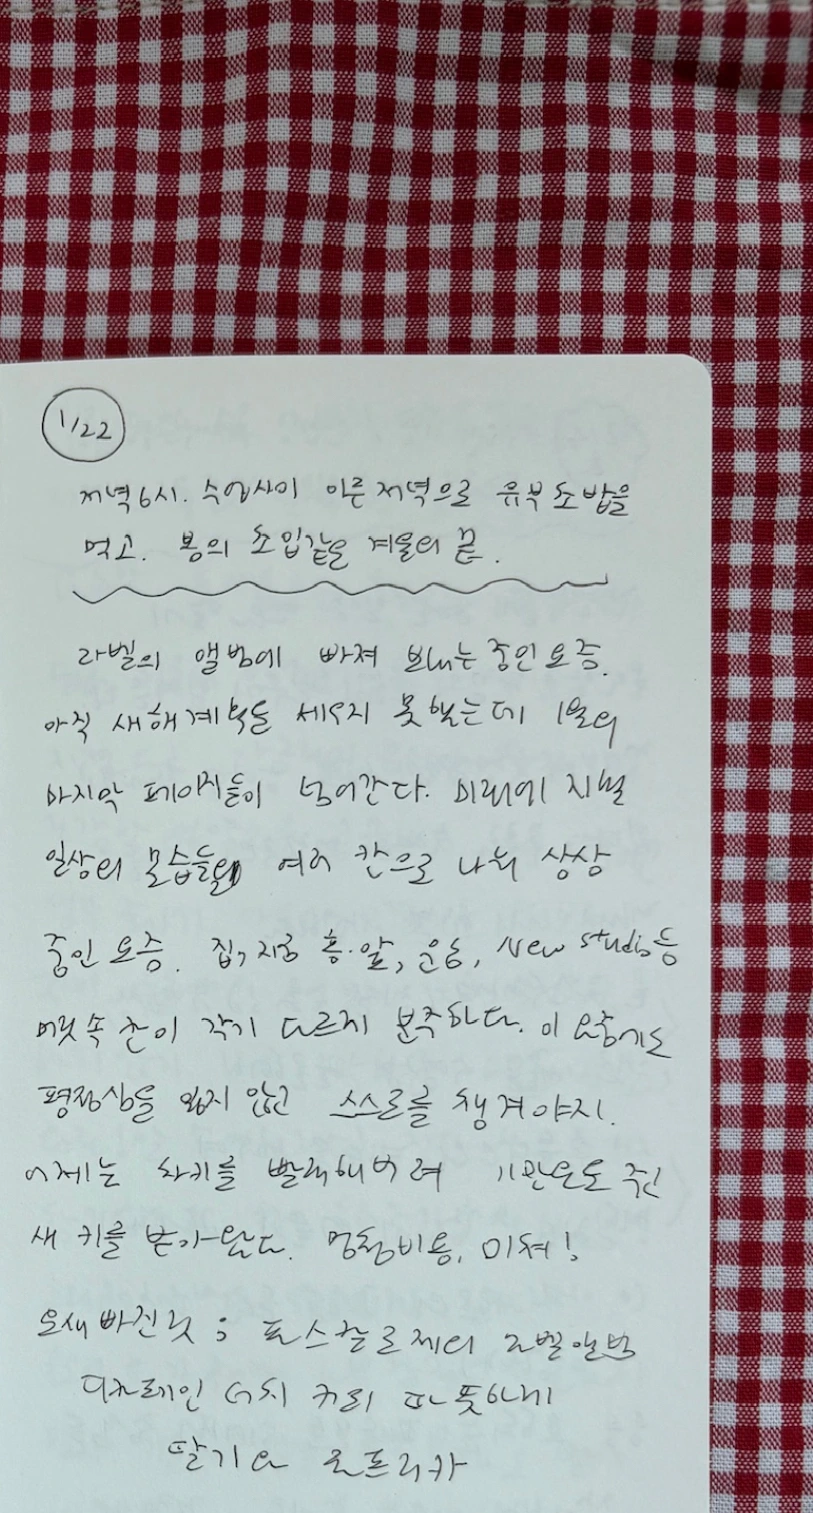 1/22
저녁 6시. 수업사이 이른 저녁으로 유부초밥을
먹고. 봄의 초입같은 겨울의 끝.
라벨의 앨범에 빠져 보내는 중인 요즘.
아직 새해계획을 세우지 못했는데 1월의
마지막 페이지들이 넘어간다. 미래에 지낼
일상의 모습들을 여러 칸으로 나눠 상상
중인 요즘. 집, 지금 홍·앞, New studio 등
머릿속 칸이 각기 다르게 분주하다. 이 와중에도
평정심을 잃지 않고 스스로를 챙겨야지.
어제는 차키를 빨래해버려 11만원 주고
새 키를 받아왔다. 멍청비용, 미쳐!
요새 빠진 것; 라벨앨범
디카페인 커피 따뜻하게
딸기와 르프리카